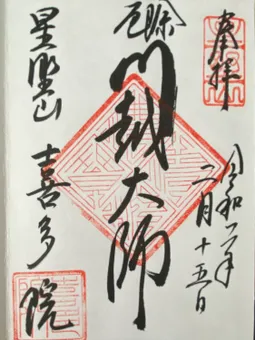 奉拝
令和二年
二月十五日
厄除
川越大師
星野山
喜多院